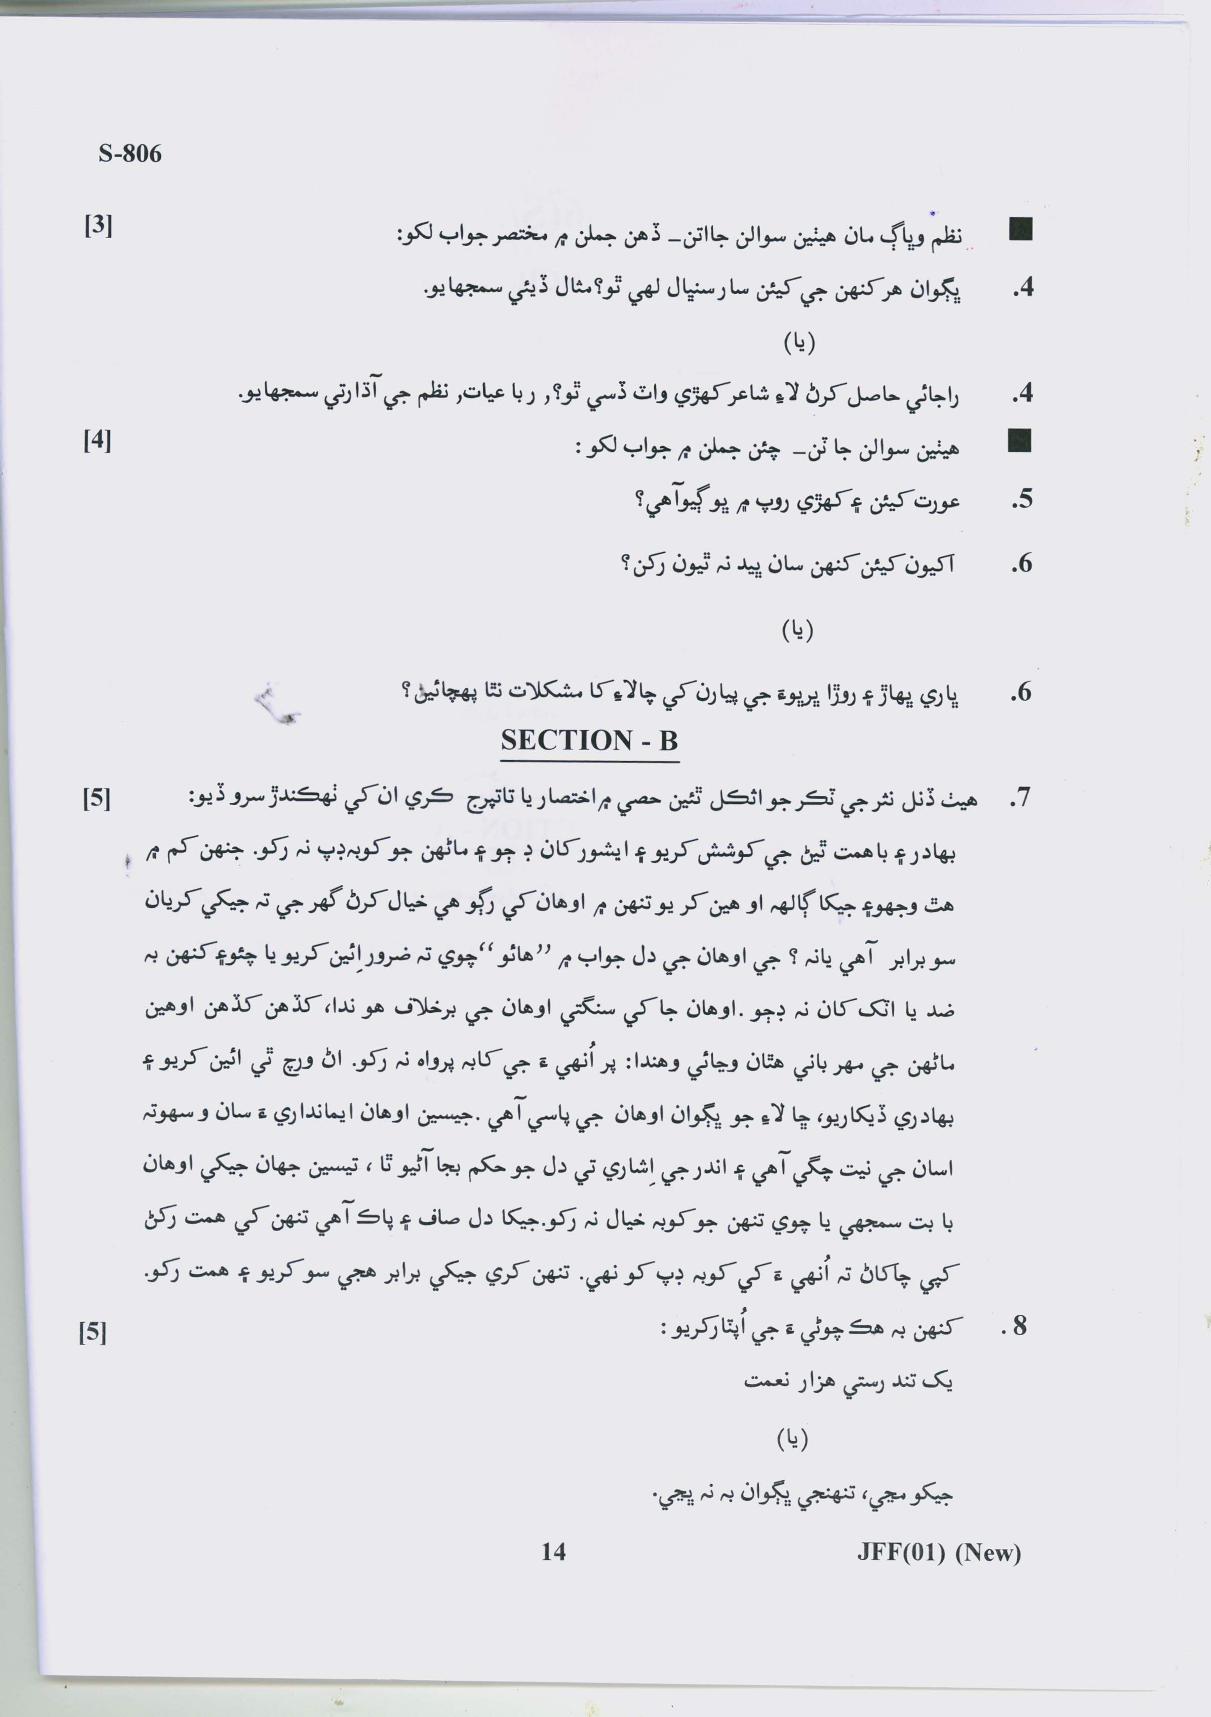 S-806
■ نظم وڀاڳ مان هيٺين سوالن جااٺن_ ڏهن جملن ۾ مختصر جواب لکو: [3]
4. ڀڳوان هرکنهن جي کيئن سارسنڀال لهي ٿو؟مثال ڏيئي سمجهايو.
(يا)
4. راجائي حاصل کرڻ لاءِ شاعرکهڙي واٽ ڏسي ٿو؟, ربا عيات, نظم جي آڌارتي سمجهايو.
■ هيٺين سوالن جا ٽن_ چئن جملن ۾ جواب لکو : [4]
5. عورت کيئن ۽کهڙي روپ ۾ ڀوڳيوآهي؟
6. اکيون کيئن کنهن سان ڀيد نہ ٿيون رکن؟
(يا)
6. ڀاري ڀهاڙ ۽ روڙا پرڀوءَ جي پيارن کي ڇالاءِ کا مشکلات نٿا پهچائين؟
SECTION - B
7. هيٺ ڏنل نثرجي ٽکر جو اٽڪل ٽئين حصي ۾اختصار يا تاتپرج ڪري ان کي ٺهڪندڙ سرو ڏيو: [5]
بهادر۽ باهمت ٿيڻ جي کوشش کريو ۽ ايشورکان ڊ ڄو ۽ ماڻهن جوکوبہڊپ نہ رکو. جنهن کم ۾
هٿ وجهو۽ جيکا ڳالهہ او هين کر يو تنهن ۾ اوهان کي رڳو هي خيال کرڻ گهر جي تہ جيکي کريان
سو برابر آهي يانہ ؟ جي اوهان جي دل جواب ۾ ’’هائو‘‘چوي تہ ضرورِائين کريو يا چئو۽کنهن بہ
ضد يا اٽک کان نہ ڊڄو .اوهان جا کي سنگتي اوهان جي برخلاف هو ندا، کڏهن کڏهن اوهين
ماڻهن جي مهر باني هٿان وڃائي وهندا: پر اُنهي ءَ جي کابہ پرواہ نہ رکو. اڻ ورچ ٿي ائين کريو ۽
بهادري ڏيکاريو، ڇا لاءِ جو ڀڳوان اوهان جي پاسي آهي .جيسين اوهان ايمانداري ءَ سان و سهوتہ
اسان جي نيت چگي آهي ۽ اندر جي اِشاري تي دل جو حکم بجا آڻيو ٿا ، تيسين جهان جيکي اوهان
با بت سمجهي يا چوي تنهن جوکوبہ خيال نہ رکو.جيکا دل صاف ۽ پاڪ آهي تنهن کي همت رکڻ
کپي ڇاکاڻ تہ اُنهي ءَ کي کوبہ ڊپ کو نهي. تنهن کري جيکي برابر هجي سو کريو ۽ همت رکو.
8. کنهن بہ هڪ چوڻي ءَ جي اُپٽارکريو : [5]
يک تند رستي هزار نعمت
(يا)
جيکو مڃي، تنهنجي ڀڳوان بہ نہ ڀڃي.
14 JFF(01) (New)